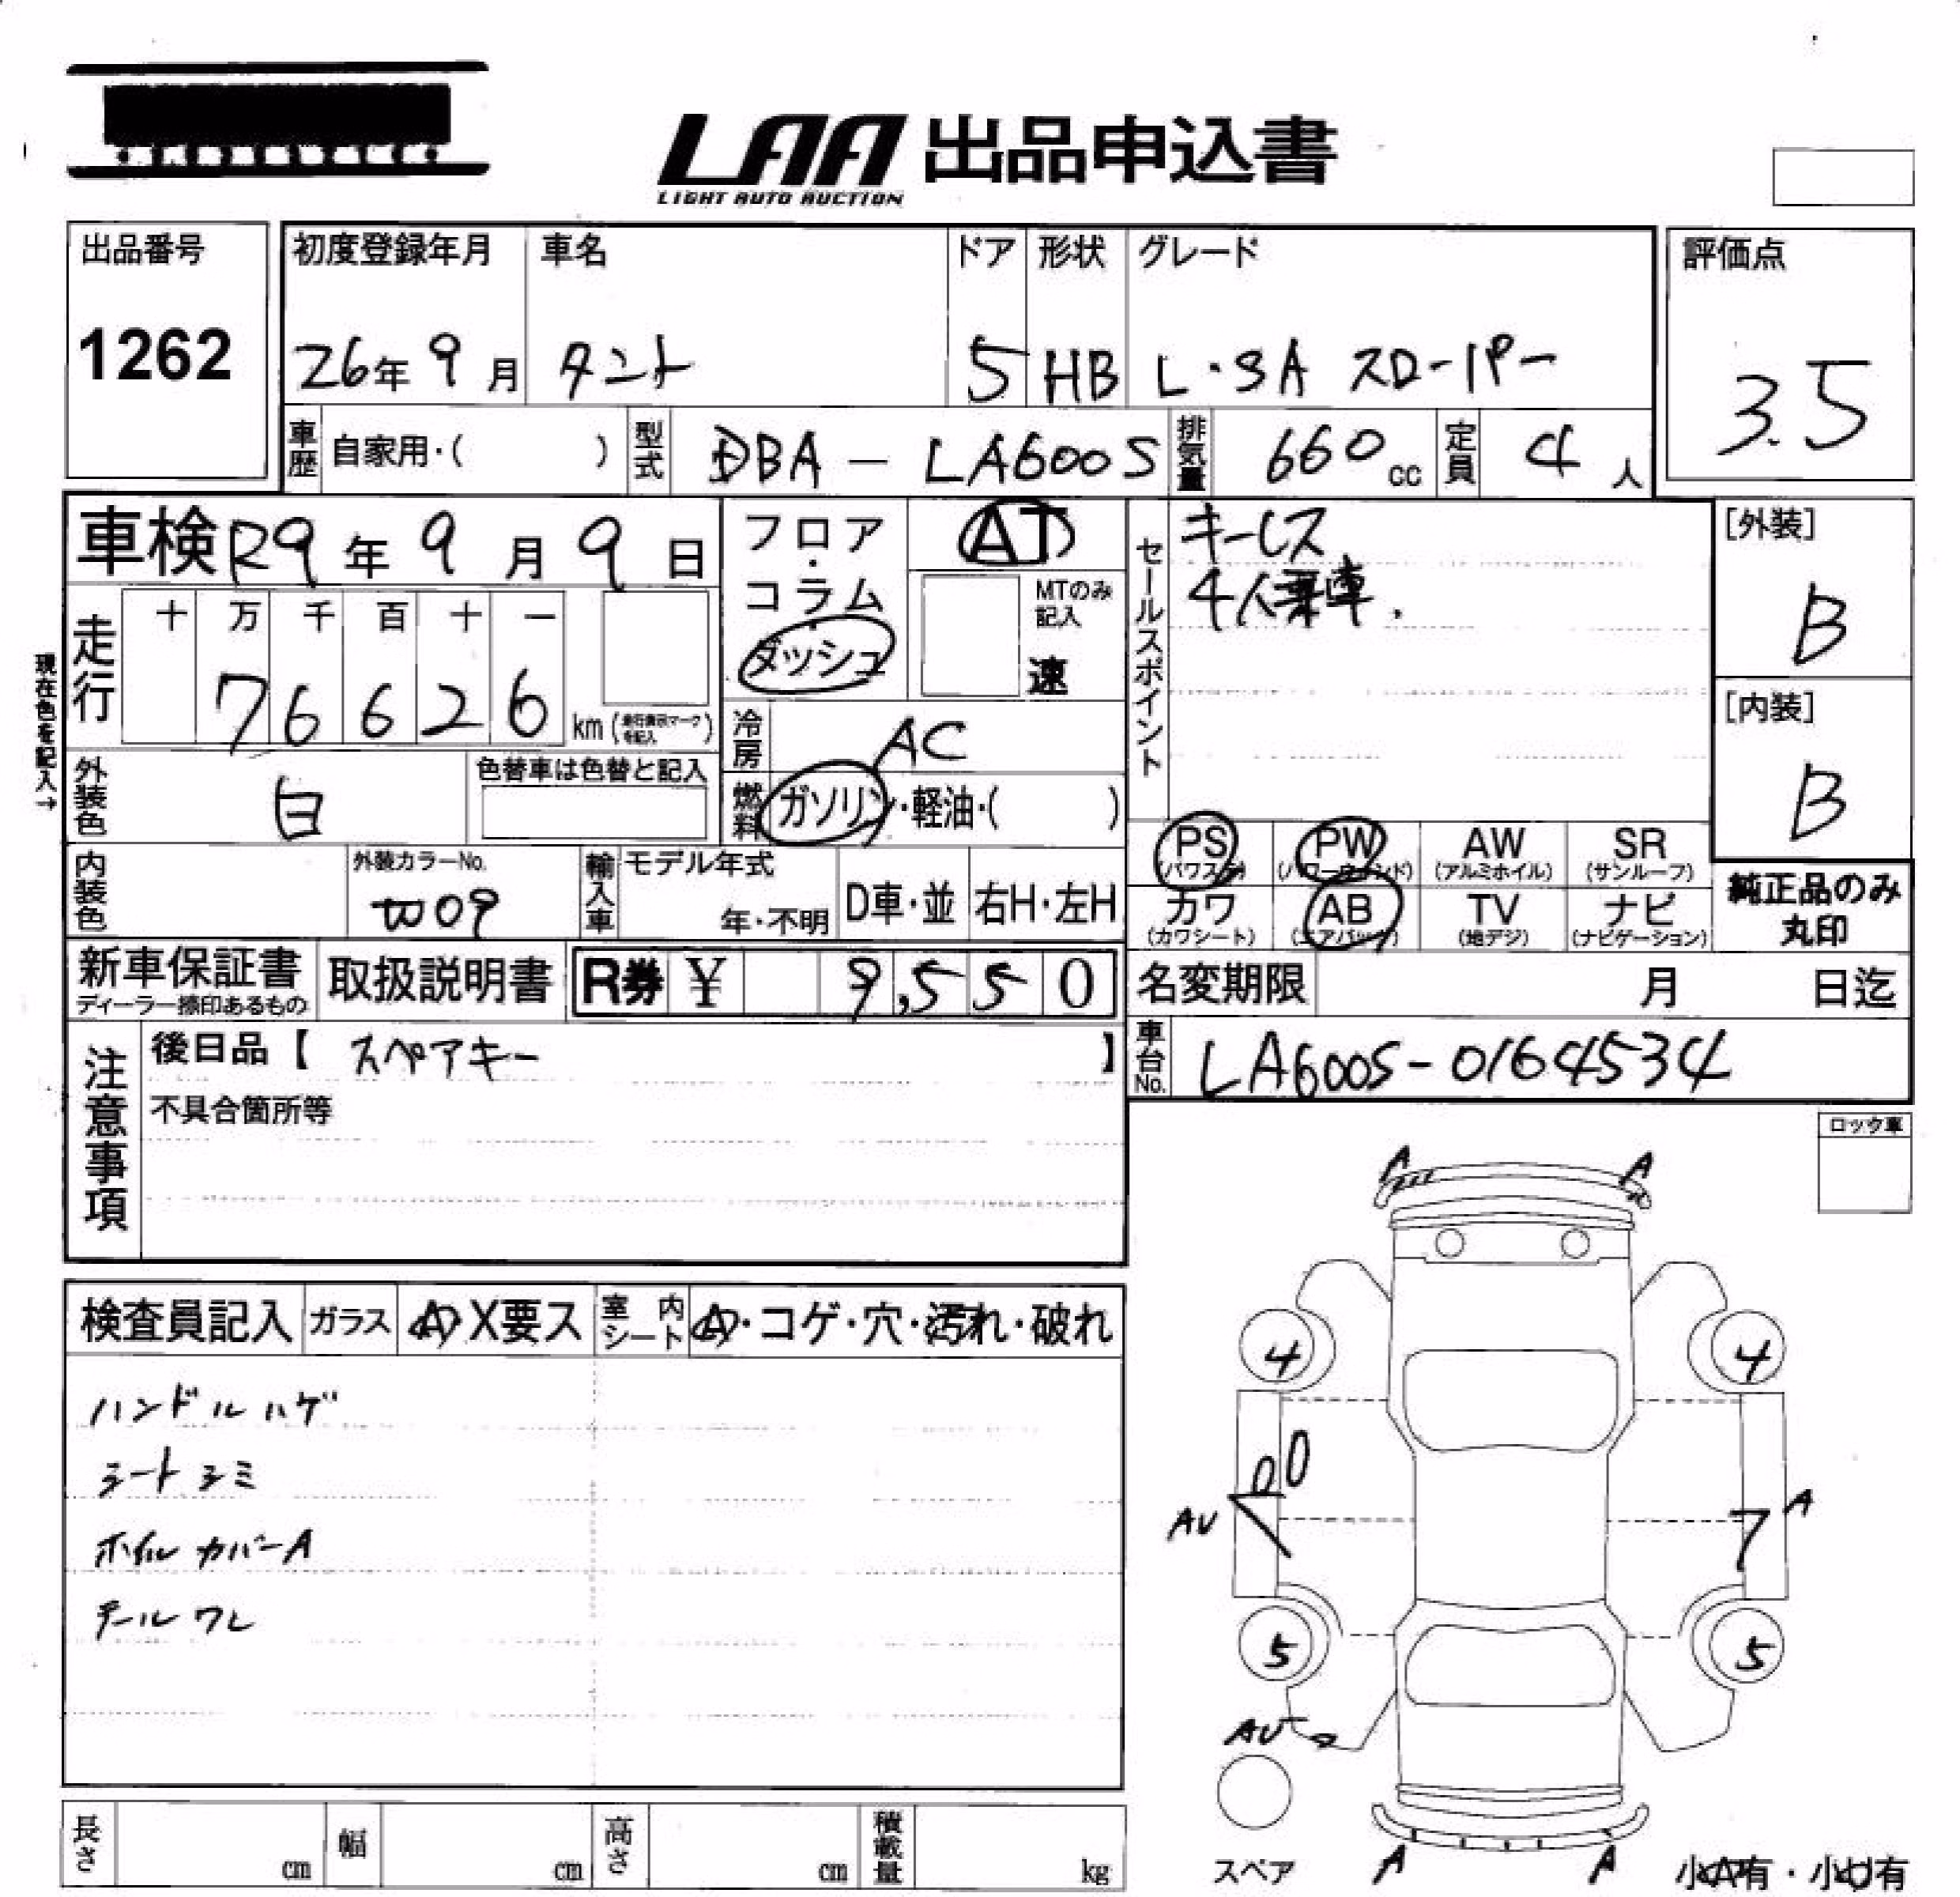 LAA 出品申込書
LIGHT AUTO AUCTION
出品番号
1262
初度登録年月
26年 9月
車名
タント
ドア
5
形状
HB
グレード
L・SA スローパー
評価点
3.5
車歴 自家用・( )
型式 DBA - LA600S
排気量 660 cc
定員 4 人
車検 R9年 9月 9日
フロア・コラム・ダッシュ
AT
MTのみ記入
速
セールスポイント
キーレス
4人乗車.
[外装]
B
[内装]
B
現在色を記入→
走行
十 万 千 百 十 一
7 6 6 2 6 km
冷房 AC
外装色 白
色替車は色替と記入
燃料 ガソリン・軽油・( )
内装色
外装カラーNo.
W09
輸入車
モデル年式
年・不明
D車・並
右H・左H
PS (パワステ)
PW (パワーウィンド)
AW (アルミホイル)
SR (サンルーフ)
カワ (カワシート)
AB (エアバッグ)
TV (地デジ)
ナビ (ナビゲーション)
純正品のみ
丸印
新車保証書
ディーラー捺印あるもの
取扱説明書
R券 ¥ 9,550
名変期限 月 日迄
注意事項
後日品【 スペアキー 】
不具合箇所等
車台No. LA600S-0164534
ロック車
検査員記入
ガラス A X要ス
室内シート A・コゲ・穴・汚れ・破れ
ハンドルハゲ
シートシミ
ホイルカバーA
テールワレ
A A
4 4
AU A
5 5
AU
スペア
A A
小A有・小U有
長さ cm
幅 cm
高さ cm
積載量 kg